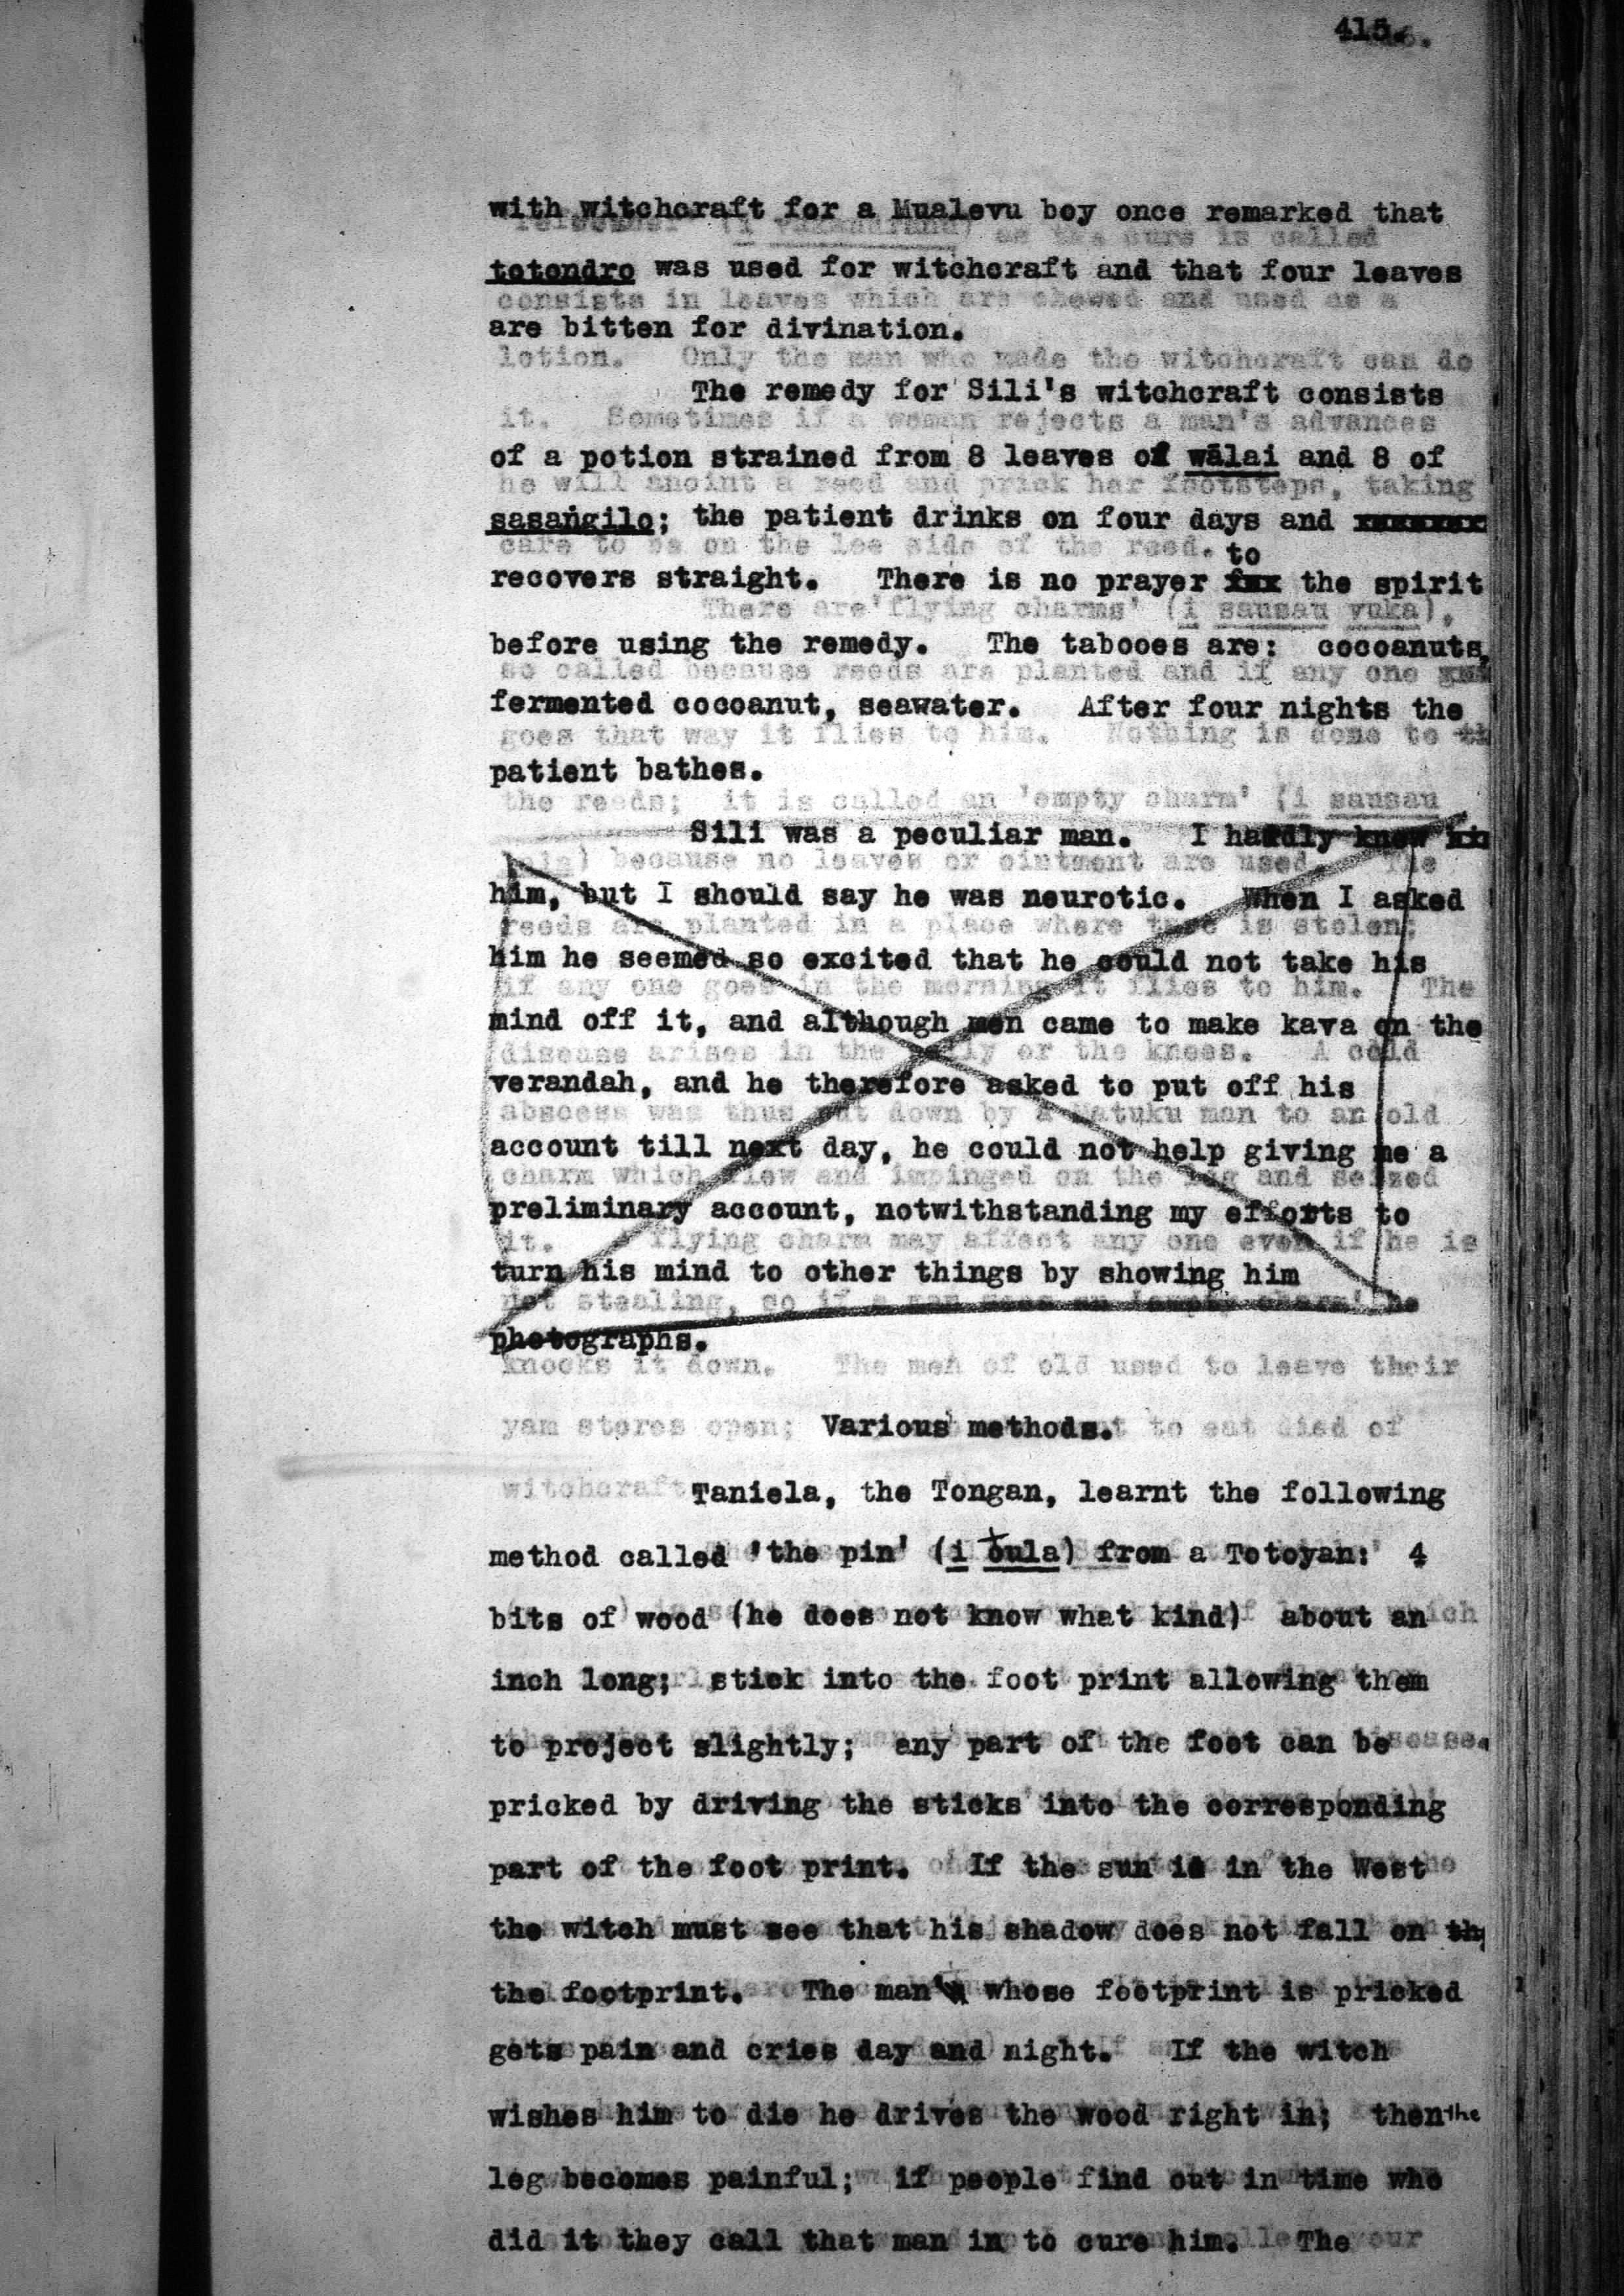 415.
with witchcraft for a Mualevu boy once remarked that
totondro was used for witchcraft and that four leaves
are bitten for divination.
The remedy for Sili's witchcraft consists
of a potion strained from 8 leaves of wālai and 8 of
sasaṅgilo; the patient drinks on four days and
recovers straight. There is no prayer to the spirit
before using the remedy. The tabooes are: cocoanuts,
fermented cocoanut, seawater. After four nights the
patient bathes.
Sili was a peculiar man. I hardly knew
him, but I should say he was neurotic. When I asked
him he seemed so excited that he could not take his
mind off it, and although men came to make kava on the
verandah, and he therefore asked to put off his
account till next day, he could not help giving me a
preliminary account, notwithstanding my efforts to
turn his mind to other things by showing him
photographs.
Various methods.
Taniela, the Tongan, learnt the following
method called 'the pin' (i oula) from a Totoyan: 4
bits of wood (he does not know what kind) about an
inch long; stick into the foot print allowing them
to project slightly; any part of the foot can be
pricked by driving the sticks into the corresponding
part of the foot print. If the sun is in the West
the witch must see that his shadow does not fall on
the footprint. The man whose footprint is pricked
gets pain and cries day and night. If the witch
wishes him to die he drives the wood right in; then the
leg becomes painful; if people find out in time who
did it they call that man in to cure him. The